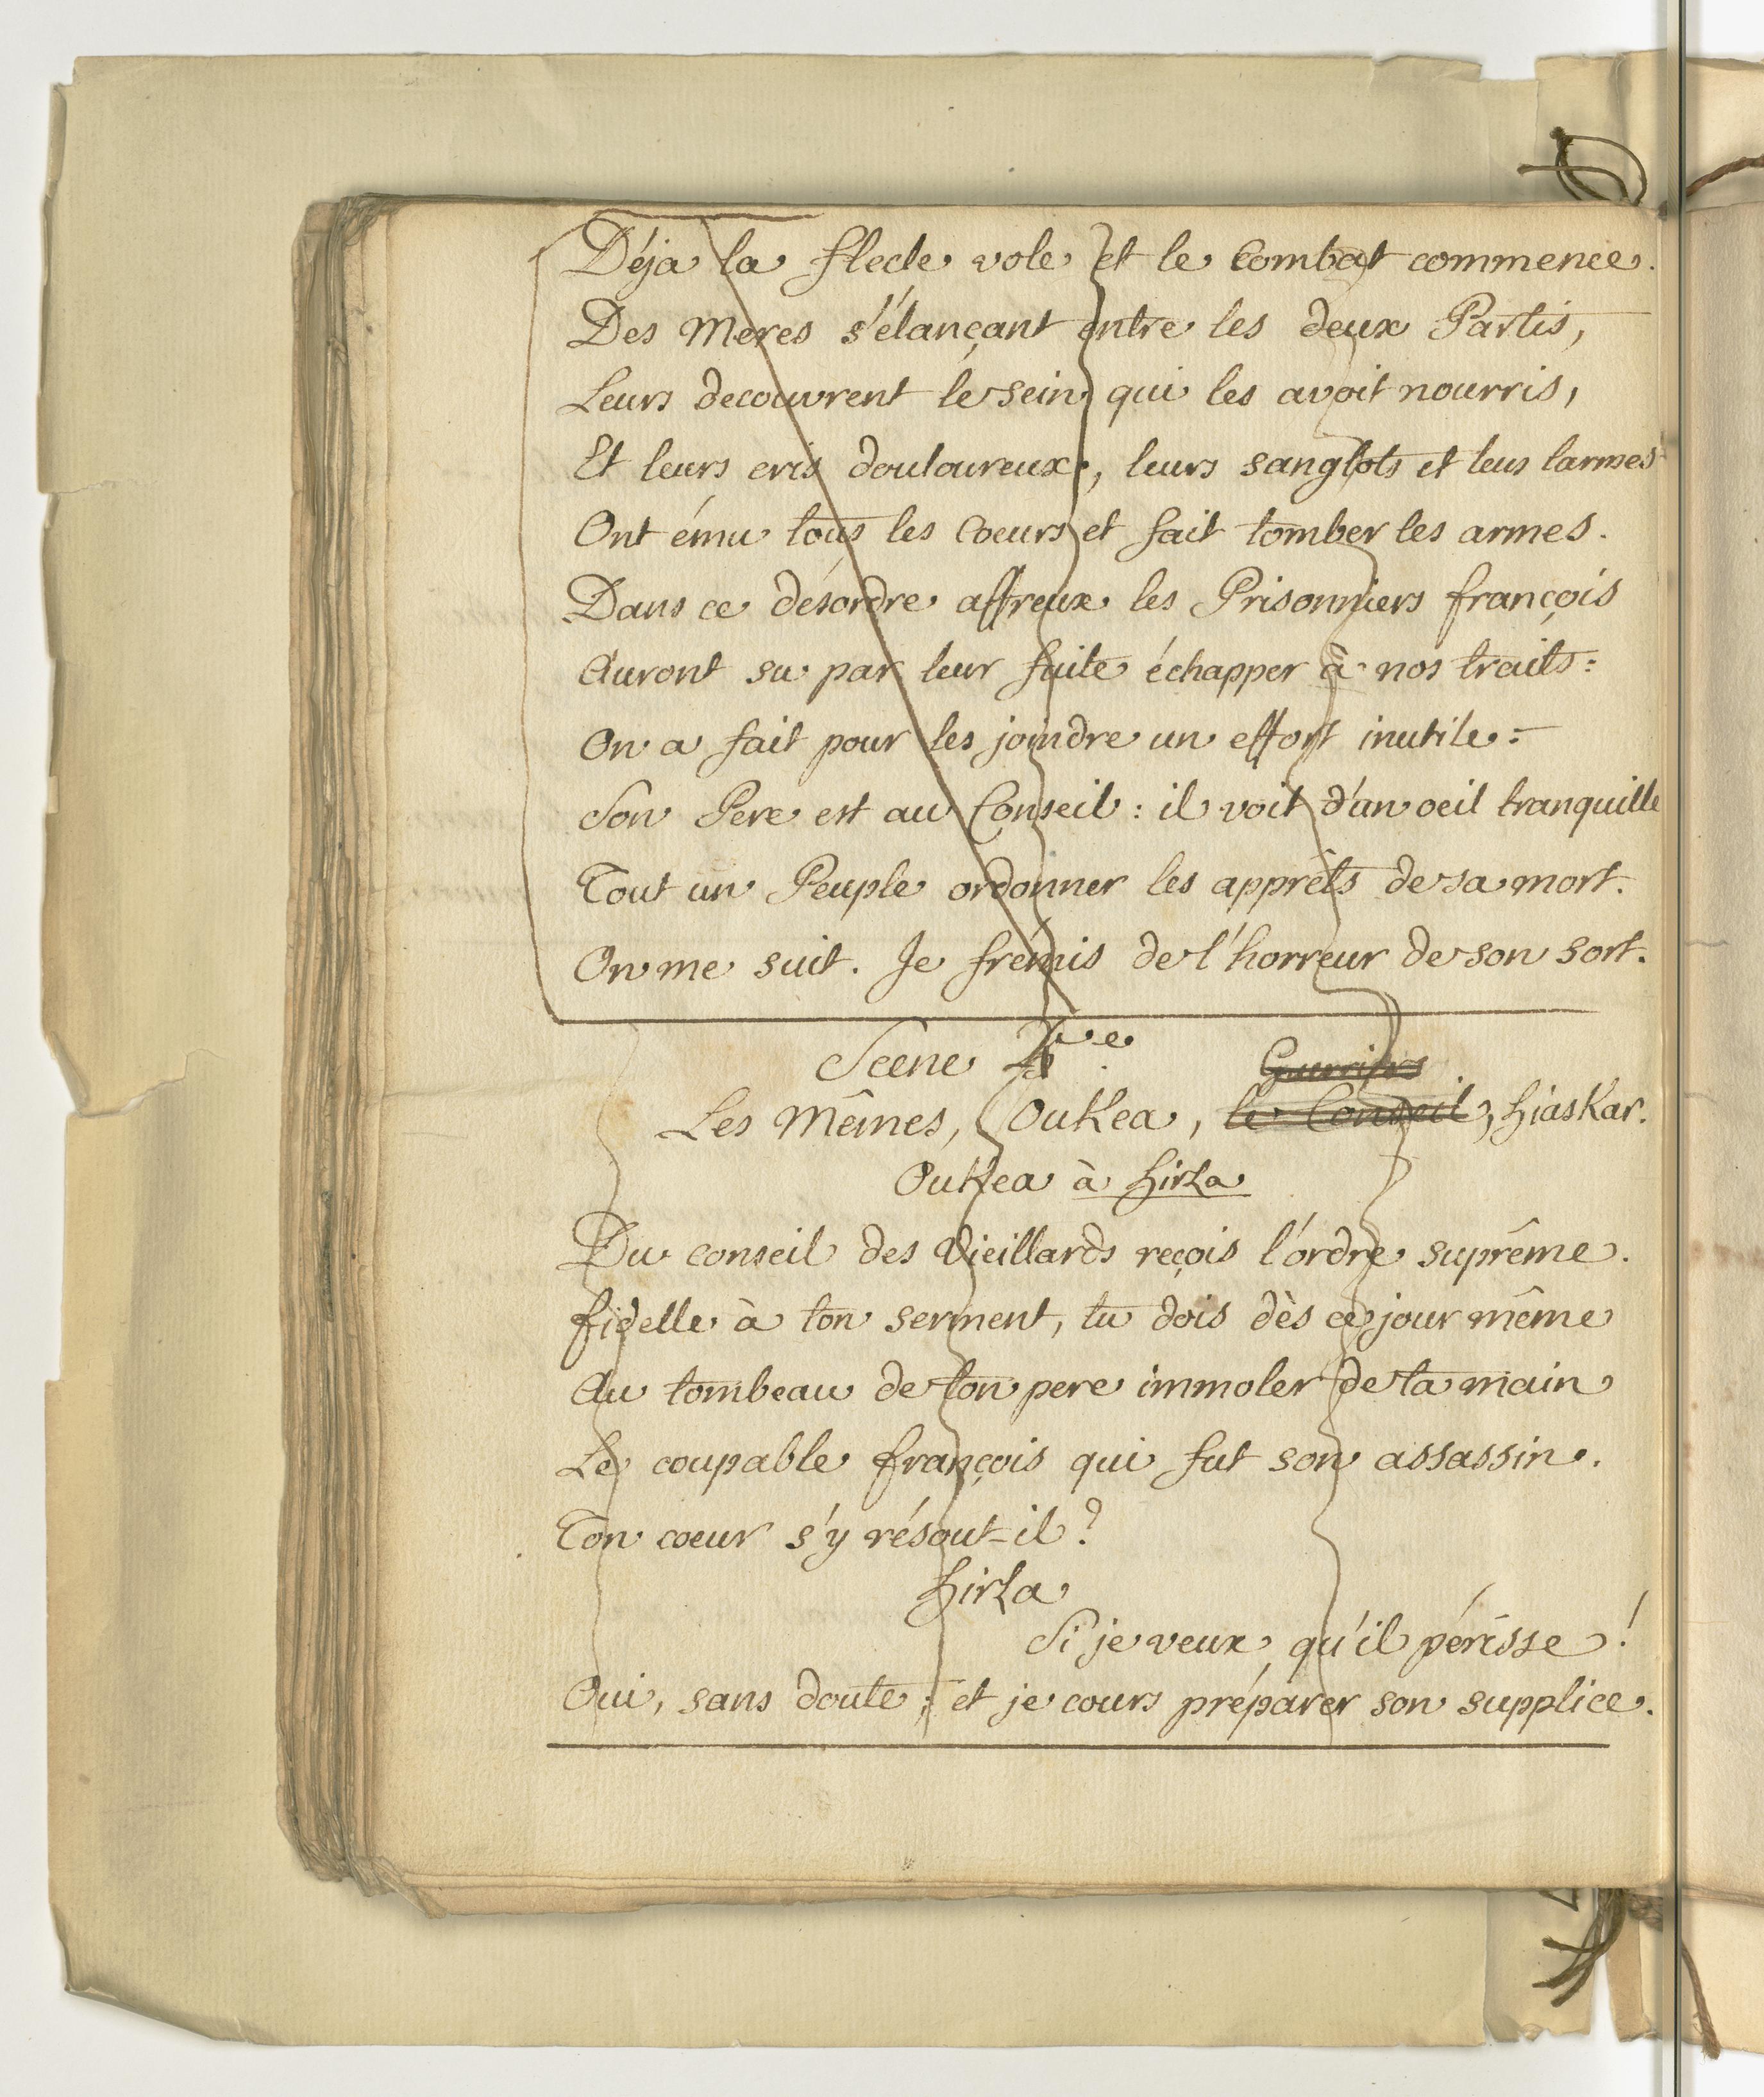 Déja la fleche vole et le Combat commence.
Des Meres s'élançant entre les deux Partis,
Leurs decouvrent le sein qui les avoit nourris,
Et leurs cris douloureux, leurs sanglots et leus larmes
Ont ému tous les Coeurs et fait tomber les armes.
Dans ce désordre affreux les Prisonniers françois
Auront su par leur fuite échapper à nos traits:
On a fait pour les joindre un effort inutile:
Son Pere est au Conseil: il voit d'un oeil tranquille
Tout un Peuple ordonner les apprêts de sa mort.
On me suit. Je frémis de l'horreur de son sort.
Scene 4.e
Guerriers
Les Mêmes, Oukea, le Conseil, hiaskar.
Oukea à hirza
Du conseil des Vieillards reçois l'ordre suprême.
fidelle à ton serment, tu dois dès ce jour même
Au tombeau de ton pere immoler de ta main
Le coupable françois qui fut son assassin.
Ton coeur s'y résout-il?
hirza
Si je veux qu'il périsse!
Oui, sans doute; et je cours préparer son supplice.